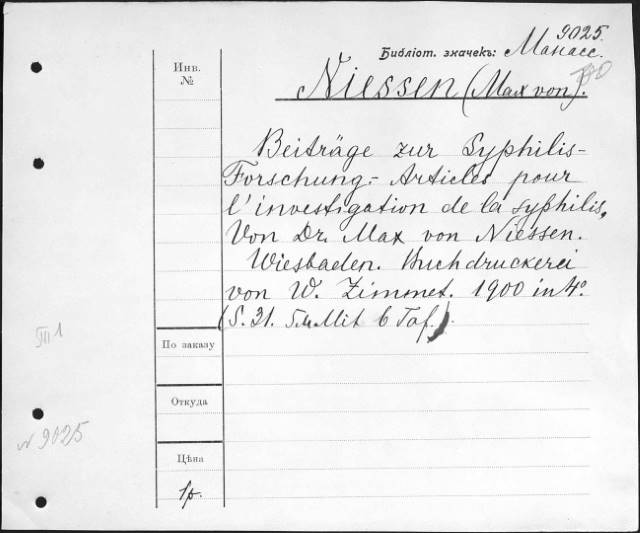 9025.
Библіот. значекъ: Манасс.
Инв.
№
Niessen (Max von).
Beiträge zur Syphilis-
Forschung.- Articles pour
l'investigation de la syphilis.
Von Dr. Max von Niessen.
Wiesbaden. Buchdruckerei
von W. Zimmet. 1900 in 4º.
(S. 31. Mit 6 Taf.).
III 1
По заказу
Откуда
№ 9025
Цѣна
1р.